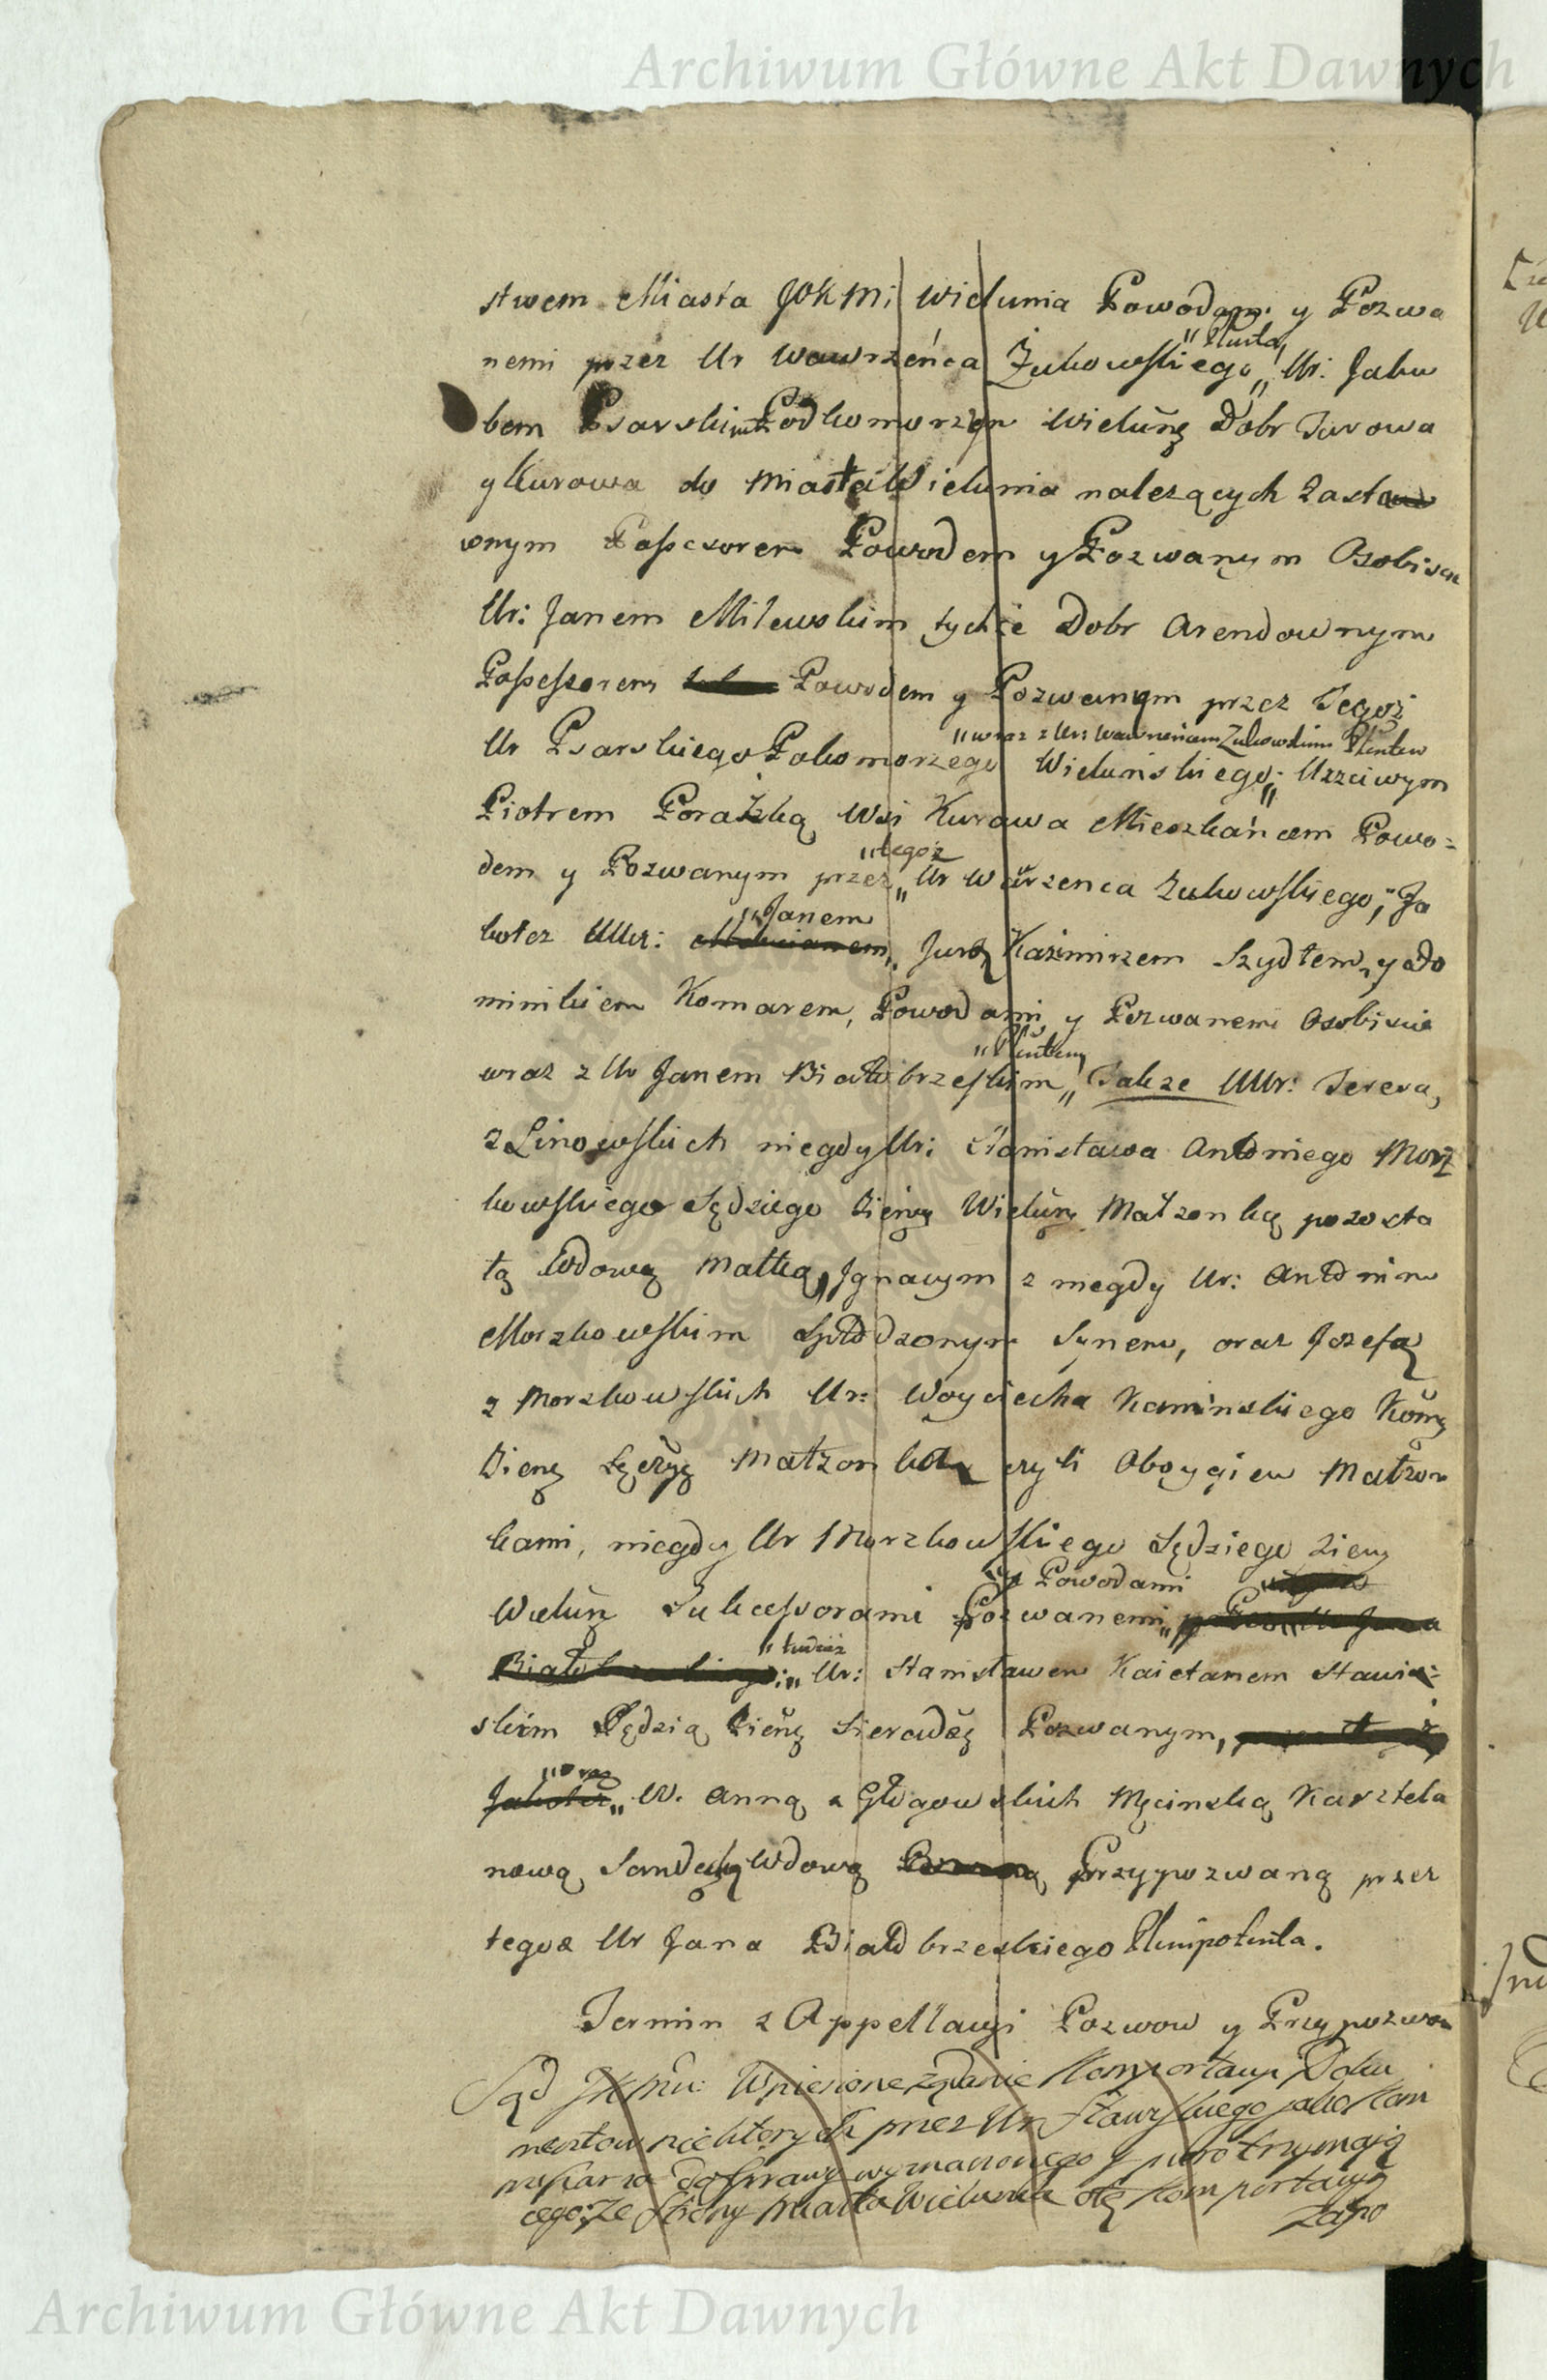 Archiwum Główne Akt Dawnych
stwem Miasta JOKMi Wielunia Powodami y Pozwa
nemi przez Ur Wawrzeńca Żukowskiego „Plnta„ Ur: Jaku
bem Psarskim Podkomorzym Wieluńs Dobr Turowa
y Kurowa do Miasta Wielunia należących Zasta
wnym Possesorem Powodem y Pozwanym Osobiscie
Ur: Janem Milewskim tychże Dobr Arendownym
Possessorem Powodem y Pozwanym przez Tegoż
„wraz z Ur: Wawrzeńcem Zukowskim Plentem
Ur Psarskiego Pokomorzego Wielunskiego; Uczciwym
Piotrem Porażką Wsi Kurowa Mieszkańcem Powo=
„tegoż
dem y Pozwanym przez „Ur Warzenca Zukowskiego; Ja
„Janem
kotez UUr: „ Jurą Kaźmirzem Szydłem, y Do
minikiem Komarem, Powodami y Pozwanemi Osobiscie
„Plentem
wraz z Ur Janem Białobrzeskim„ Takze UUr: Teresą,
z Linowskich niegdy Ur: Stanisława Antoniego Morz
kowskiego Sędziego Ziem Wieluń Małzonką pozosta
łą Wdową Matką, Jgnacym z niegdy Ur: Antonim
Morzkowskim Spłodzonym Synem, oraz Jozefą
z Morzkowskich Ur: Woyciecha Kaminskiego Kom
Ziem Łęczyc Małzonką czyli Oboygiem Małzon
kami, niegdy Ur Morzkowskiego Sędziego Ziem
y Powodami
Wieluń Sukcessorami Pozwanemi „
„tudzież
„ Ur: Stanisławem Kaietanem Stawi=
skim Sędzią Ziem Sieradz Pozwanym,
„oraz
Jakotez„ W. Anną z Głogowskich Męcinską Kasztela
nową Sandecką Wdową Przypozwaną przez
tegoz Ur Jana Białobrzeskiego Plenipotenta.
Termin z Appellacyi Pozwow y Przypozwow
Sąd JKMci Wniesione żądanie Komportacyi Doku
mentow niektorych przez Ur Stawiskiego jako Kom
missarza do sprawy wyznaczonego y pioro trzymaią
cego; ze strony Miasta Wielunia Komportacyą
Zapo
Archiwum Główne Akt Dawnych